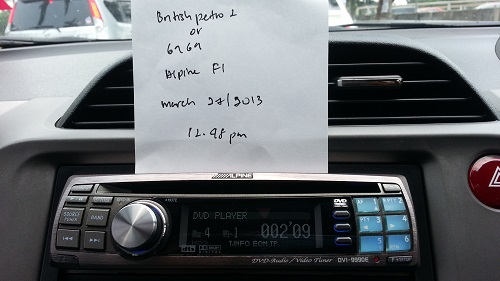 British petrol
or
6969
Alpine F1
march 27/2013
12.48 pm
ALPINE
SOURCE
POWER
BAND
DVD
DVD PLAYER
4
1
002'09
DVD-Audio/Video Tuner
DVI-9990E
1
2
3
4
5
6